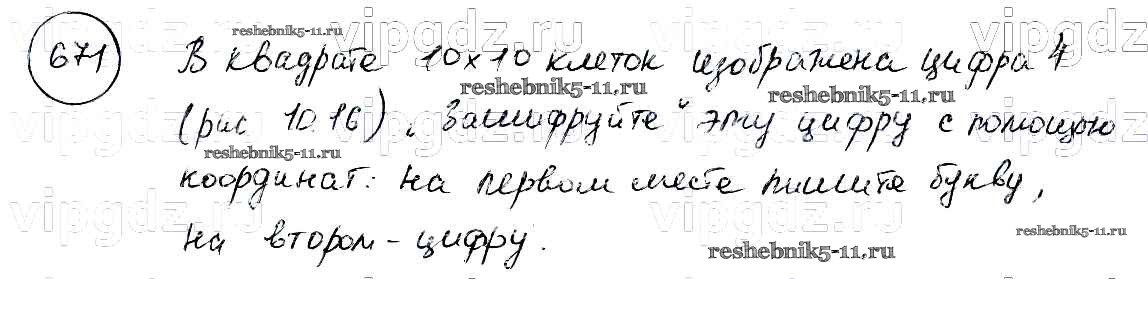 671 В квадрате 10х10 клеток изображена цифра 4
(рис 10.16). „Зашифруйте" эту цифру с помощью
координат: на первом месте пишите букву,
на втором - цифру.
reshebnik5-11.ru
reshebnik5-11.ru
reshebnik5-11.ru
reshebnik5-11.ru
reshebnik5-11.ru
reshebnik5-11.ru
vipgdz.ru
vipgdz.ru
vipgdz.ru
vipgdz.ru
vipgdz.ru
vipgdz.ru